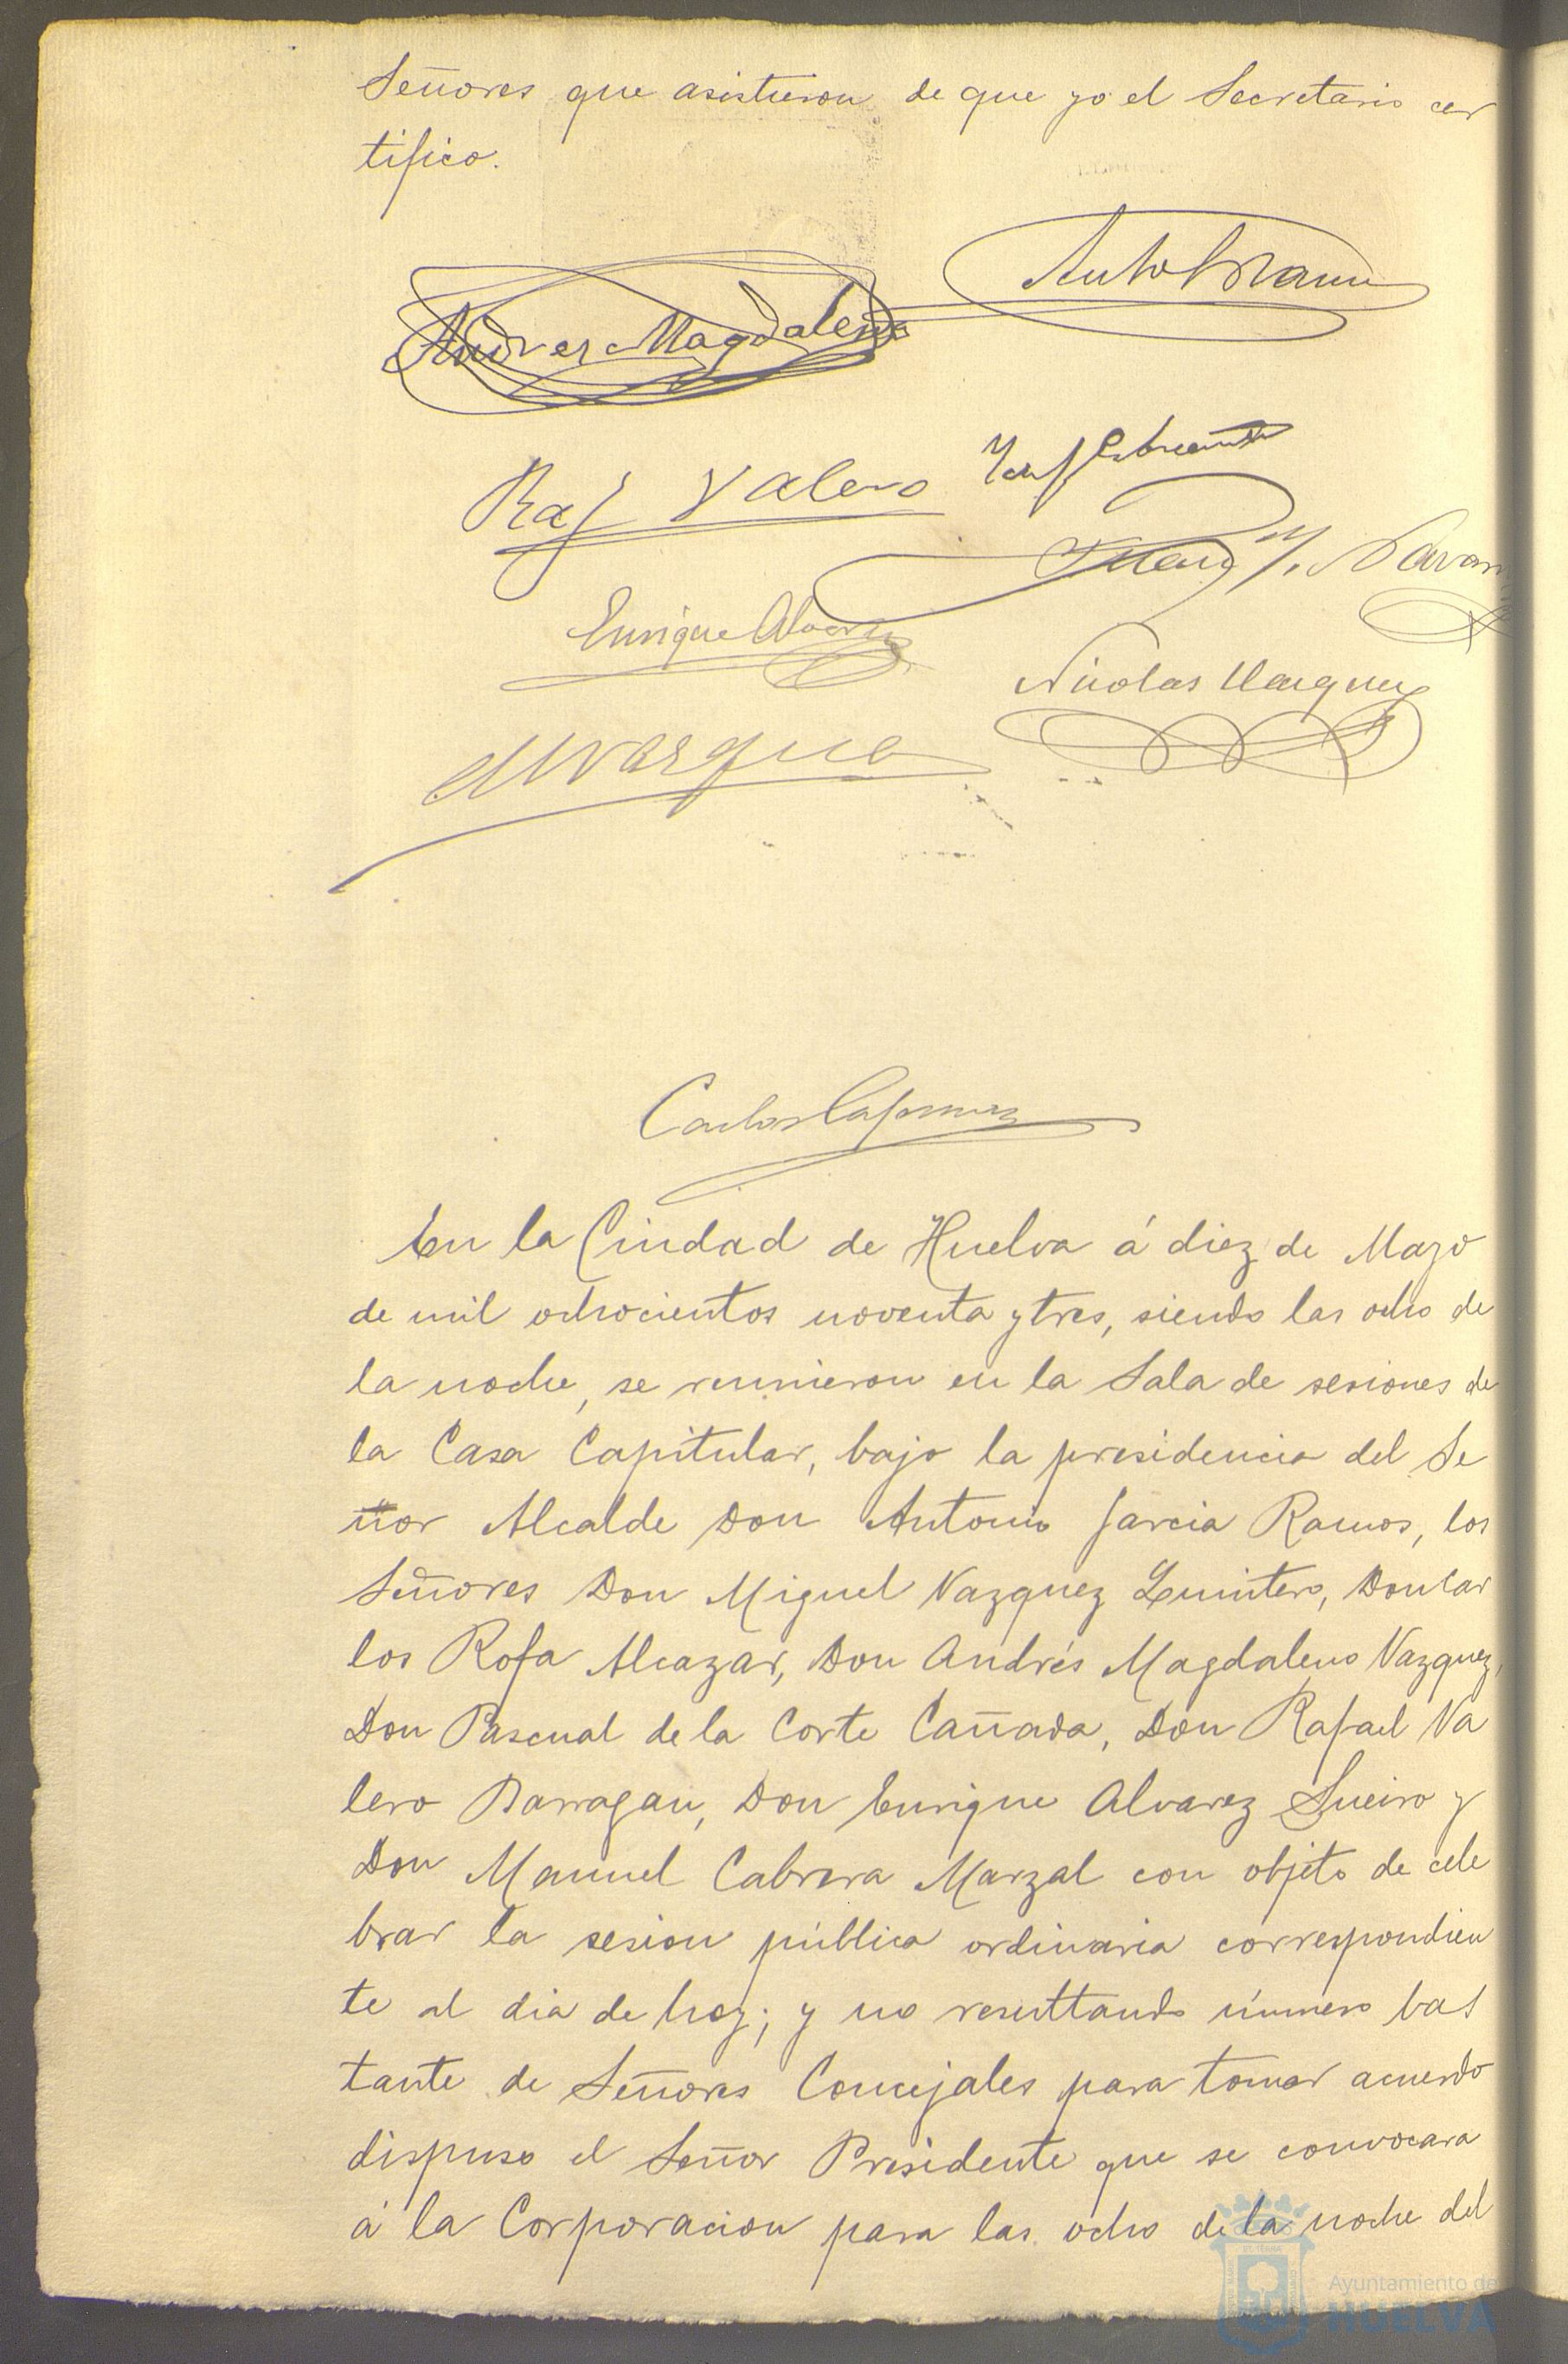 Señores que asistieron de que yo el Secretario cer
tifico.
Andres Magdaleno
Raf Valero
Enrique Alvarez
Nicolas Vazquez
M Vazquez
Carlos
En la Ciudad de Huelva á diez de Mayo
de mil ochocientos noventa y tres, siendo las ocho de
la noche, se reunieron en la Sala de sesiones de
la Casa Capitular, bajo la presidencia del Se
ñor Alcalde Don Antonio Garcia Ramos, los
Señores Don Miguel Vazquez Quintero, Don Car
los Rofa Alcazar, Don Andrés Magdaleno Vazquez,
Don Pascual de la Corte Cañada, Don Rafael Va
lero Barragan, Don Enrique Alvarez Sueiro y
Don Manuel Cabrera Marzal con objeto de cele
brar la sesion pública ordinaria correspondien
te al dia de hoy; y no resultando número bas
tante de Señores Concejales para tomar acuerdo
dispuso el Señor Presidente que se convocara
á la Corporacion para las ocho de la noche del
Ayuntamiento de
HUELVA